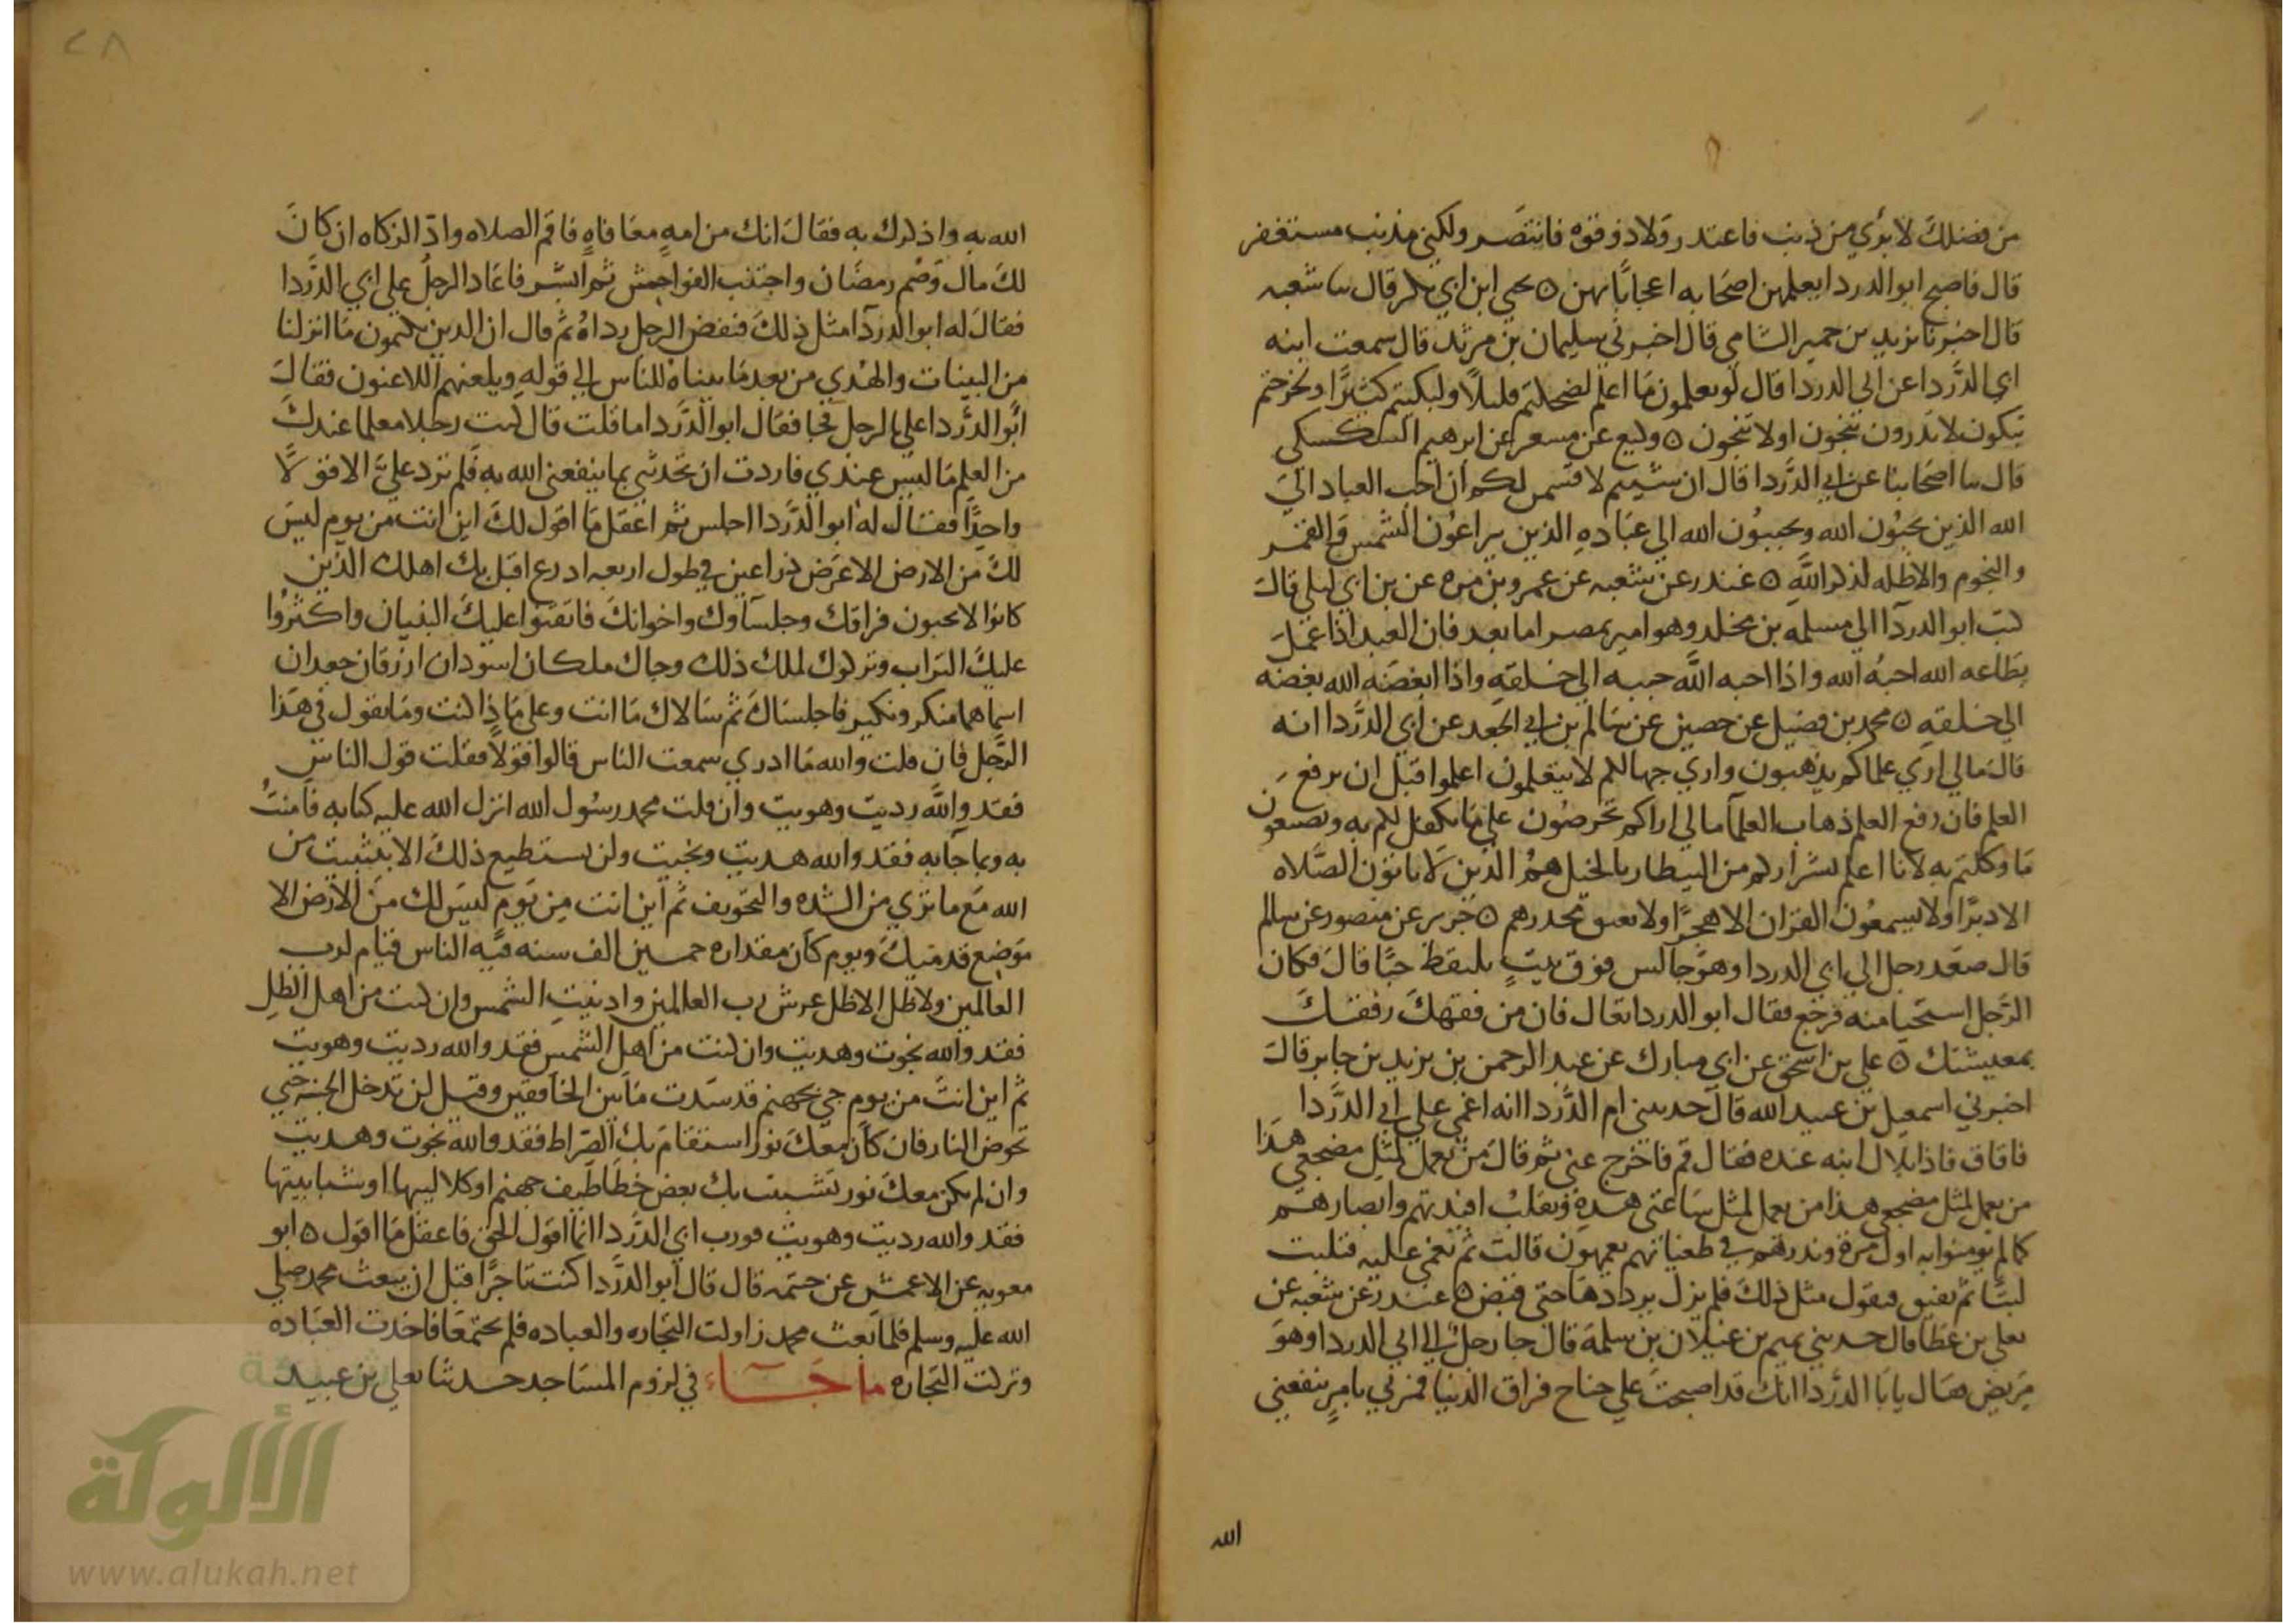 من فضلك لا بري من ذنب فاعتذر ولا ذو قوه فانتصر ولكني مذنب مستغفر
قال فاصبح ابو الدردا يعلمهن اصحابه اعجابا بهن ٥ يحي ابن ابي بكر قال سا شعبه
قال اخبرنا يزيد بن خمير الشامي قال اخبرني سليمان بن مرثد قال سمعت ابنه
ابي الدردا عن ابي الدردا قال لو تعلمون ما اعلم لضحكتم قليلا ولبكيتم كثيرا ولخرجتم
تبكون لا تدرون تنجون اولا تنجون ٥ وكيع عن مسعر عن ابرهيم السكسكي
قال سا اصحابنا عن ابي الدردا قال ان شيتم لاقسمن لكم ان احب العباد الي
الله الذين يحبون الله ويحببون الله الي عباده الذين يراعون الشمس والقمر
والنجوم والاظله لذكر الله ٥ غندر عن شعبه عن عمرو بن مره عن بن ابي ليلي قال
كتب ابو الدردآ الي مسلمه بن مخلد وهو امير بمصر اما بعد فان العبد اذا عمل
بطاعه الله احبه الله واذا احبه الله حببه الي خلقه واذا ابغضه الله بغضه
الي خلقه ٥ محمد بن فضيل عن حصين عن سالم بن ابي الجعد عن ابي الدردا انه
قال مالي اري علماكم يذهبون واري جهالكم لا يتعلمون اعلموا قبل ان يرفع
العلم فان رفع العلم ذهاب العلمآ مالي اراكم تحرصون علي ما تكفل لكم به وتضيعون
ما وكلتم به لانا اعلم بشراركم من البيطار بالخيل هم الذين لا ياتون الصلاه
الا دبرا ولا يسمعون القران الا هجرا ولا يعتق محررهم ٥ جرير عن منصور عن سالم
قال صعد رجل الي ابي الدردا وهو جالس فوق بيت يلتقط حبا قال فكان
الرجل استحيا منه فرجع فقال ابو الدردا تعال فان من فقهك رفقك
بمعيشتك ٥ علي بن اسحق عن ابن مبارك عن عبد الرحمن بن يزيد بن جابر قال
اخبرني اسمعيل بن عبيد الله قال حدثتني ام الدردا انه اغمي علي ابي الدردا
فافاق فاذا بلال ابنه عنده فقال قم فاخرج عني ثم قال من يعمل لمثل مضجعي هذا
من يعمل لمثل مضجعي هذا من يعمل لمثل ساعتي هذه ونقلب افيدتهم وابصارهم
كما لم يومنوا به اول مرة ونذرهم في طغيانهم يعمهون قالت ثم يغمي عليه فتلبث
لبثا ثم يفيق فيقول مثل ذلك فلم يزل يرددها حتي قبض ٥ غندر عن شعبه عن
يعلي بن عطا قال حدثني تميم بن غيلان بن سلمه قال جا رجل الي ابي الدردا وهو
مريض فقال يابا الدردا انك قد اصبحت علي جناح فراق الدنيا فمرني بامر ينفعني
الله
٢٨
الله به واذكرك به فقال انك من امه معافاه فاقم الصلاه واد الزكاه ان كان
لك مال وصم رمضان واجتنب الفواحش ثم ابشر فاعاد الرجل علي ابي الدردا
فقال له ابو الدردآ مثل ذلك فنفض الرجل رداه ثم قال ان الذين يكتمون ما انزلنا
من البينات والهدي من بعد ما بيناه للناس الي قوله ويلعنهم اللاعنون فقال
ابو الدردا علي بالرجل فجا فقال ابو الدردا ما قلت قال كنت رجلا معلما عندك
من العلم ما ليس عندي فاردت ان تحدثني بما ينفعني الله به فلم ترد علي الا قولا
واحدا فقال له ابو الدردا اجلس ثم اعقل ما اقول لك اين انت من يوم ليس
لك من الارض الا عرض ذراعين في طول اربعه ادرع اقبل بك اهلك الذين
كانوا لا يحبون فراقك وجلساوك واخوانك فاتقنوا عليك البنيان واكثروا
عليك التراب وتركوك لمتلك ذلك وجاك ملكان اسودان ازرقان جعدان
اسماهما منكر ونكير فاجلساك ثم سالاك ما انت وعلي ماذا كنت وما تقول في هذا
الرجل فان قلت والله ما ادري سمعت الناس قالوا قولا فقلت قول الناس
فقد والله رديت وهويت وان قلت محمد رسول الله انزل الله عليه كتابه فامنت
به وبما جا به فقد والله هديت ونجيت ولن تستطيع ذلك الا بتثبيت من
الله مع ما تري من الشده والتخويف ثم اين انت من يوم ليس لك من الارض الا
موضع قدميك ويوم كان مقداره خمسين الف سنه فيه الناس قيام لرب
العالمين ولا ظل الا ظل عرش رب العالمين وادنيت الشمس وان كنت من اهل الظل
فقد والله نجوت وهديت وان كنت من اهل الشمس فقد والله رديت وهويت
ثم اين انت من يوم جي بجهنم قد سدت ما بين الخافقين وقيل لن تدخل الجنه حتي
تخوض النار فان كان معك نور استقام بك الصراط فقد والله نجوت وهديت
وان لم يكن معك نور تشبثت بك بعض خطاطيف جهنم او كلاليبها او شبابيثها
فقد والله رديت وهويت فورب ابي الدردا انما اقول الحق فاعقل ما اقول ٥ ابو
معويه عن الاعمش عن خثيمه قال قال ابو الدردا كنت تاجرا قبل ان يبعث محمد صلي
الله عليه وسلم فلما بعث محمد زاولت التجاره والعباده فلم يجتمعا فاخذت العباده
وتركت التجاره ما جاء في لزوم المساجد حدثنا يعلي بن عبيد
شبكة
الألوكة
www.alukah.net